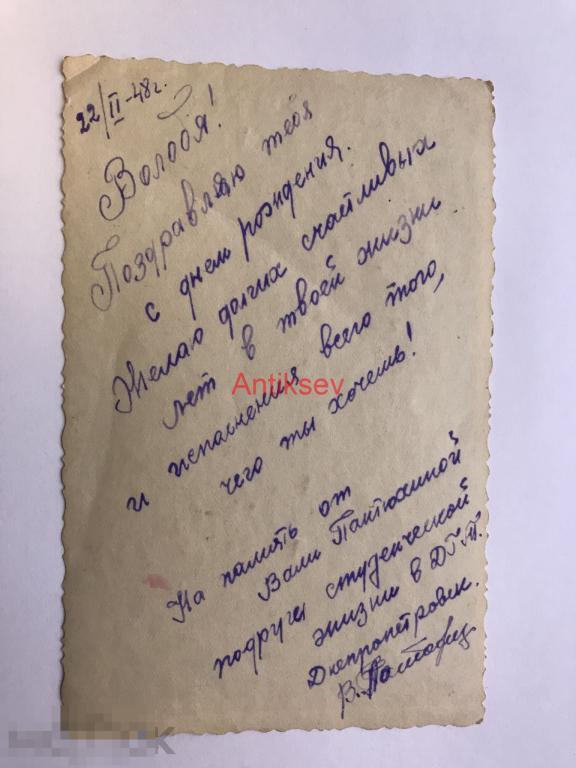 22/II-48г.
Володя!
Поздравляю тебя
с днем рождения.
Желаю долгих счастливых
лет в твоей жизни
и исполнения всего того,
чего ты хочешь!
На память от
Вали Пантюхиной
подруги студенческой
жизни в
Днепропетровск.
В.
Antiksev